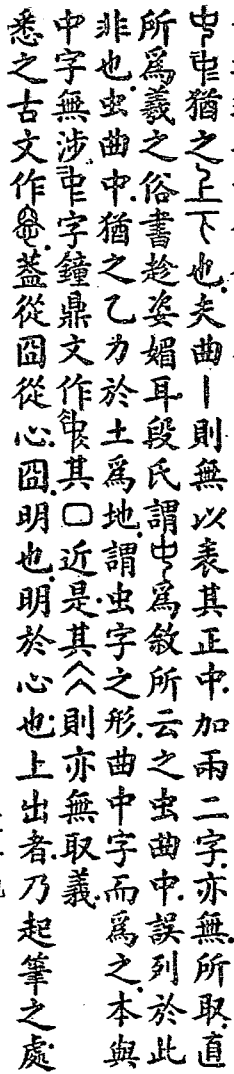 猶之上下也夫曲丨則無以表其正中加兩二字亦無所取直
所為義之俗書趁姿媚耳段氏謂為敘所云之虫曲中誤列於此
非也虫曲中猶之乙力於土為地謂虫字之形曲中字而為之本與
中字無涉字鐘鼎文作其口近是其則亦無取義
悉之古文作蓋從囧從心囧明也明於心也上出者乃起筆之處